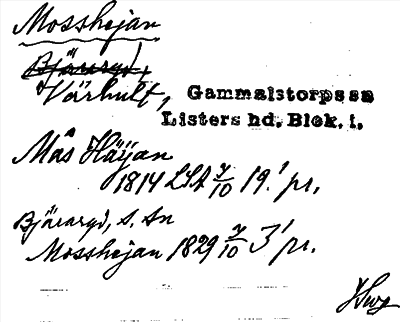 Mosshejan
Bjäraryd,
Värhult, Gammalstorps sn
Listers hd, Blek. l.
Mås Häÿan
1814 LSA 7/10 19.' pr.
Bjäraryd, s. sn
Mosshejan 1829 7/10 3' pr.